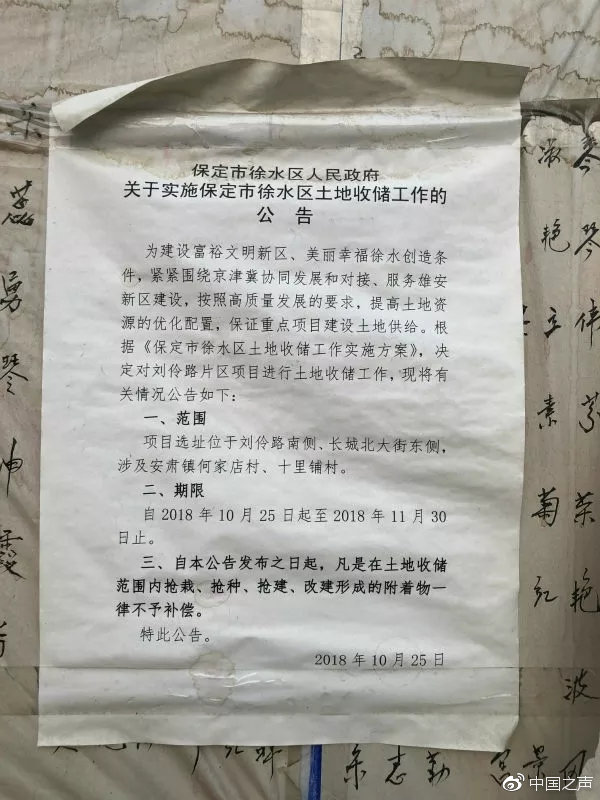 保定市徐水区人民政府
关于实施保定市徐水区土地收储工作的
公 告
为建设富裕文明新区、美丽幸福徐水创造条
件，紧紧围绕京津冀协同发展和对接、服务雄安
新区建设，按照高质量发展的要求，提高土地资
源的优化配置，保证重点项目建设土地供给。根
据《保定市徐水区土地收储工作实施方案》，决
定对刘伶路片区项目进行土地收储工作，现将有
关情况公告如下：
一、范围
项目选址位于刘伶路南侧、长城北大街东侧，
涉及安肃镇何家店村、十里铺村。
二、期限
自 2018 年 10 月 25 日起至 2018 年 11 月 30
日止。
三、自本公告发布之日起，凡是在土地收储
范围内抢栽、抢种、抢建、改建形成的附着物一
律不予补偿。
特此公告。
2018 年 10 月 25 日
勇
琴
坤
霞
淑
艳
素
菊
红
琴
琴
伟
芬
荣
艳
波
志勤
景
中国之声